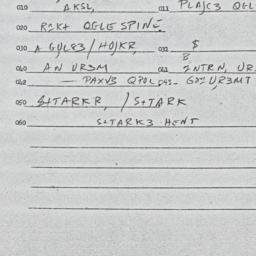 010 AKSL, 011 PLAJC3 OGL
020 R2K+ OGLE SPINE
030 A GULR3/HOJKR, 031 $
040 AN UR3M 041 INTRN, UR
042 — PAXVB QPOL 043-
050 S+TARKR, /S+TARK
060 S+TARK3 HENT